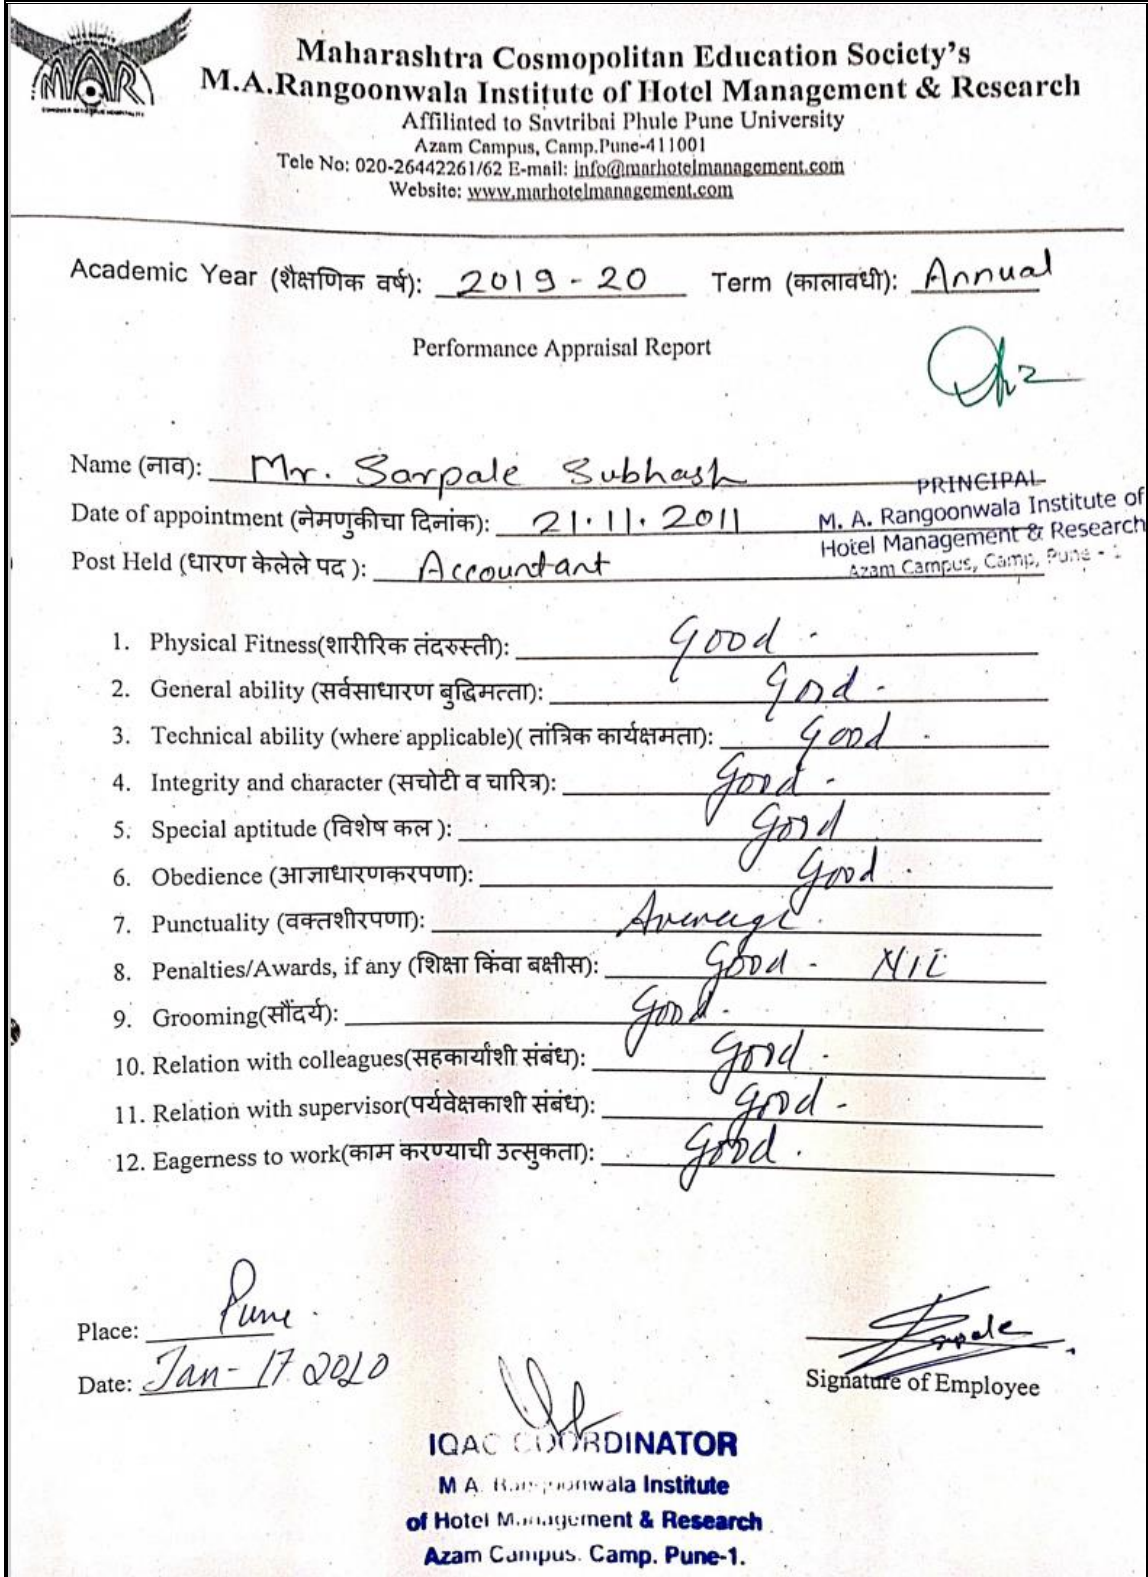 MAR
Maharashtra Cosmopolitan Education Society's
M.A.Rangoonwala Institute of Hotel Management & Research
Affiliated to Savtribai Phule Pune University
Azam Campus, Camp.Pune-411001
Tele No: 020-26442261/62 E-mail: info@marhotelmanagement.com
Website: www.marhotelmanagement.com
Academic Year (शैक्षणिक वर्ष): 2019-20 Term (कालावधी): Annual
Performance Appraisal Report
Name (नाव): Mr. Sarpale Subhash
PRINCIPAL
Date of appointment (नेमणुकीचा दिनांक): 21.11.2011
M. A. Rangoonwala Institute of
Hotel Management & Research
Post Held (धारण केलेले पद ): Accountant
Azam Campus, Camp, Pune - 1
1. Physical Fitness(शारीरिक तंदरुस्ती): Good.
2. General ability (सर्वसाधारण बुद्धिमत्ता): Good.
3. Technical ability (where applicable)( तांत्रिक कार्यक्षमता): Good.
4. Integrity and character (सचोटी व चारित्र): Good.
5. Special aptitude (विशेष कल ): Good
6. Obedience (आज्ञाधारणकरपणा): Good.
7. Punctuality (वक्तशीरपणा): Average.
8. Penalties/Awards, if any (शिक्षा किंवा बक्षीस): Good - NIL
9. Grooming(सौंदर्य): Good.
10. Relation with colleagues(सहकार्यांशी संबंध): Good.
11. Relation with supervisor(पर्यवेक्षकाशी संबंध): Good.
12. Eagerness to work(काम करण्याची उत्सुकता): Good.
Place: Pune.
Date: Jan-17 2020
Signature of Employee
IQAC COORDINATOR
M A. Rangoonwala Institute
of Hotel Management & Research
Azam Campus. Camp. Pune-1.